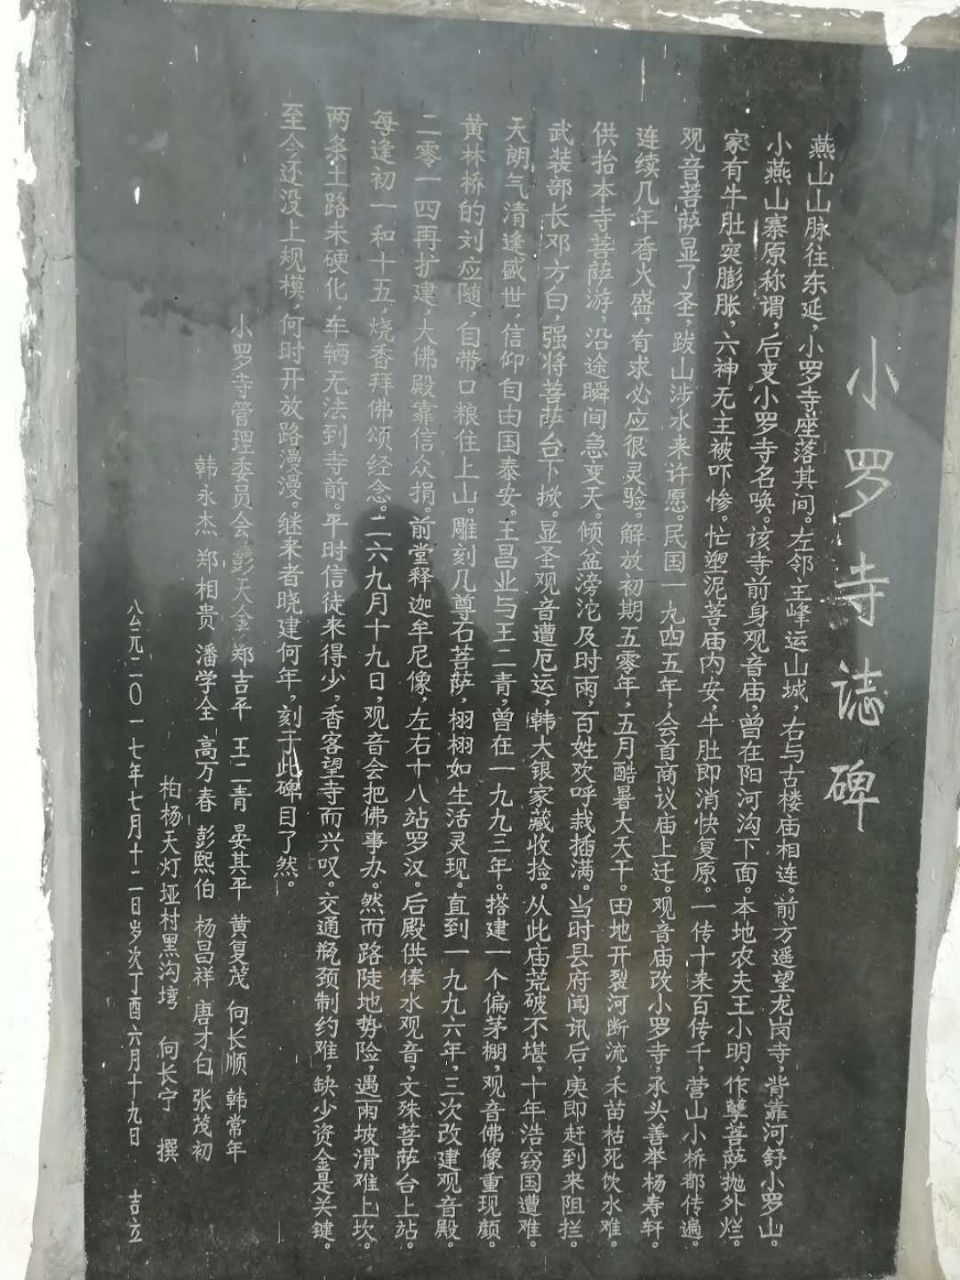 小罗寺誌碑
燕山山脉往东延，小罗寺座落其间。左邻主峰运山城，右与古楼庙相连。前方遥望龙岗寺，背靠河舒小罗山。
小燕山寨原称谓，后变小罗寺名唤。该寺前身观音庙，曾在阳河沟下面。本地农夫王小明，作孽菩萨抛外烂。
家有牛肚突膨胀，六神无主被吓惨。忙塑泥菩庙内安，牛肚即消快复原。一传十来百传千，营山小桥都传遍。
观音菩萨显了圣，跋山涉水来许愿。民国一九四五年，会首商议庙上迁。观音庙改小罗寺，承头善举杨寿轩。
连续几年香火盛，有求必应很灵验。解放初期五零年，五月酷暑大天干。田地开裂河断流，禾苗枯死饮水难。
供抬本寺菩萨游，沿途瞬间急变天。倾盆滂沱及时雨，百姓欢呼栽插满。当时县府闻讯后，庚即赶到来阻拦。
武装部长邓方白，强将菩萨台下掀。显圣观音遭厄运，韩大银家藏收捡。从此庙荒破不堪，十年浩窃国遭难。
天朗气清逢盛世，信仰自由国泰安。王昌业与王二青，曾在一九九三年。搭建一个偏茅棚，观音佛像重现颜。
黄林桥的刘应随，自带口粮住上山。雕刻几尊石菩萨，栩栩如生活灵现。直到一九九六年，三次改建观音殿。
二零一四再扩建，大佛殿靠信众捐。前堂释迦牟尼像，左右十八站罗汉。后殿供俸水观音，文殊菩萨台上站。
每逢初一和十五，烧香拜佛颂经念。二六九月十九日，观音会把佛事办。然而路陡地势险，遇雨坡滑难上坎。
两条土路未硬化，车辆无法到寺前。平时信徒来得少，香客望寺而兴叹。交通瓶颈制约难，缺少资金是关键。
至今还没上规模，何时开放路漫漫。继来者晓建何年，刻于此碑目了然。
小罗寺管理委员会 彭天金 郑吉平 王二青 晏其平 黄复茂 向长顺 韩常年
韩永杰 郑相贵 潘学全 高万春 彭熙伯 杨昌祥 唐才白 张茂初
柏杨天灯垭村黑沟塆 向长宁 撰
公元二〇一七年七月十二日岁次丁酉六月十九日 吉立